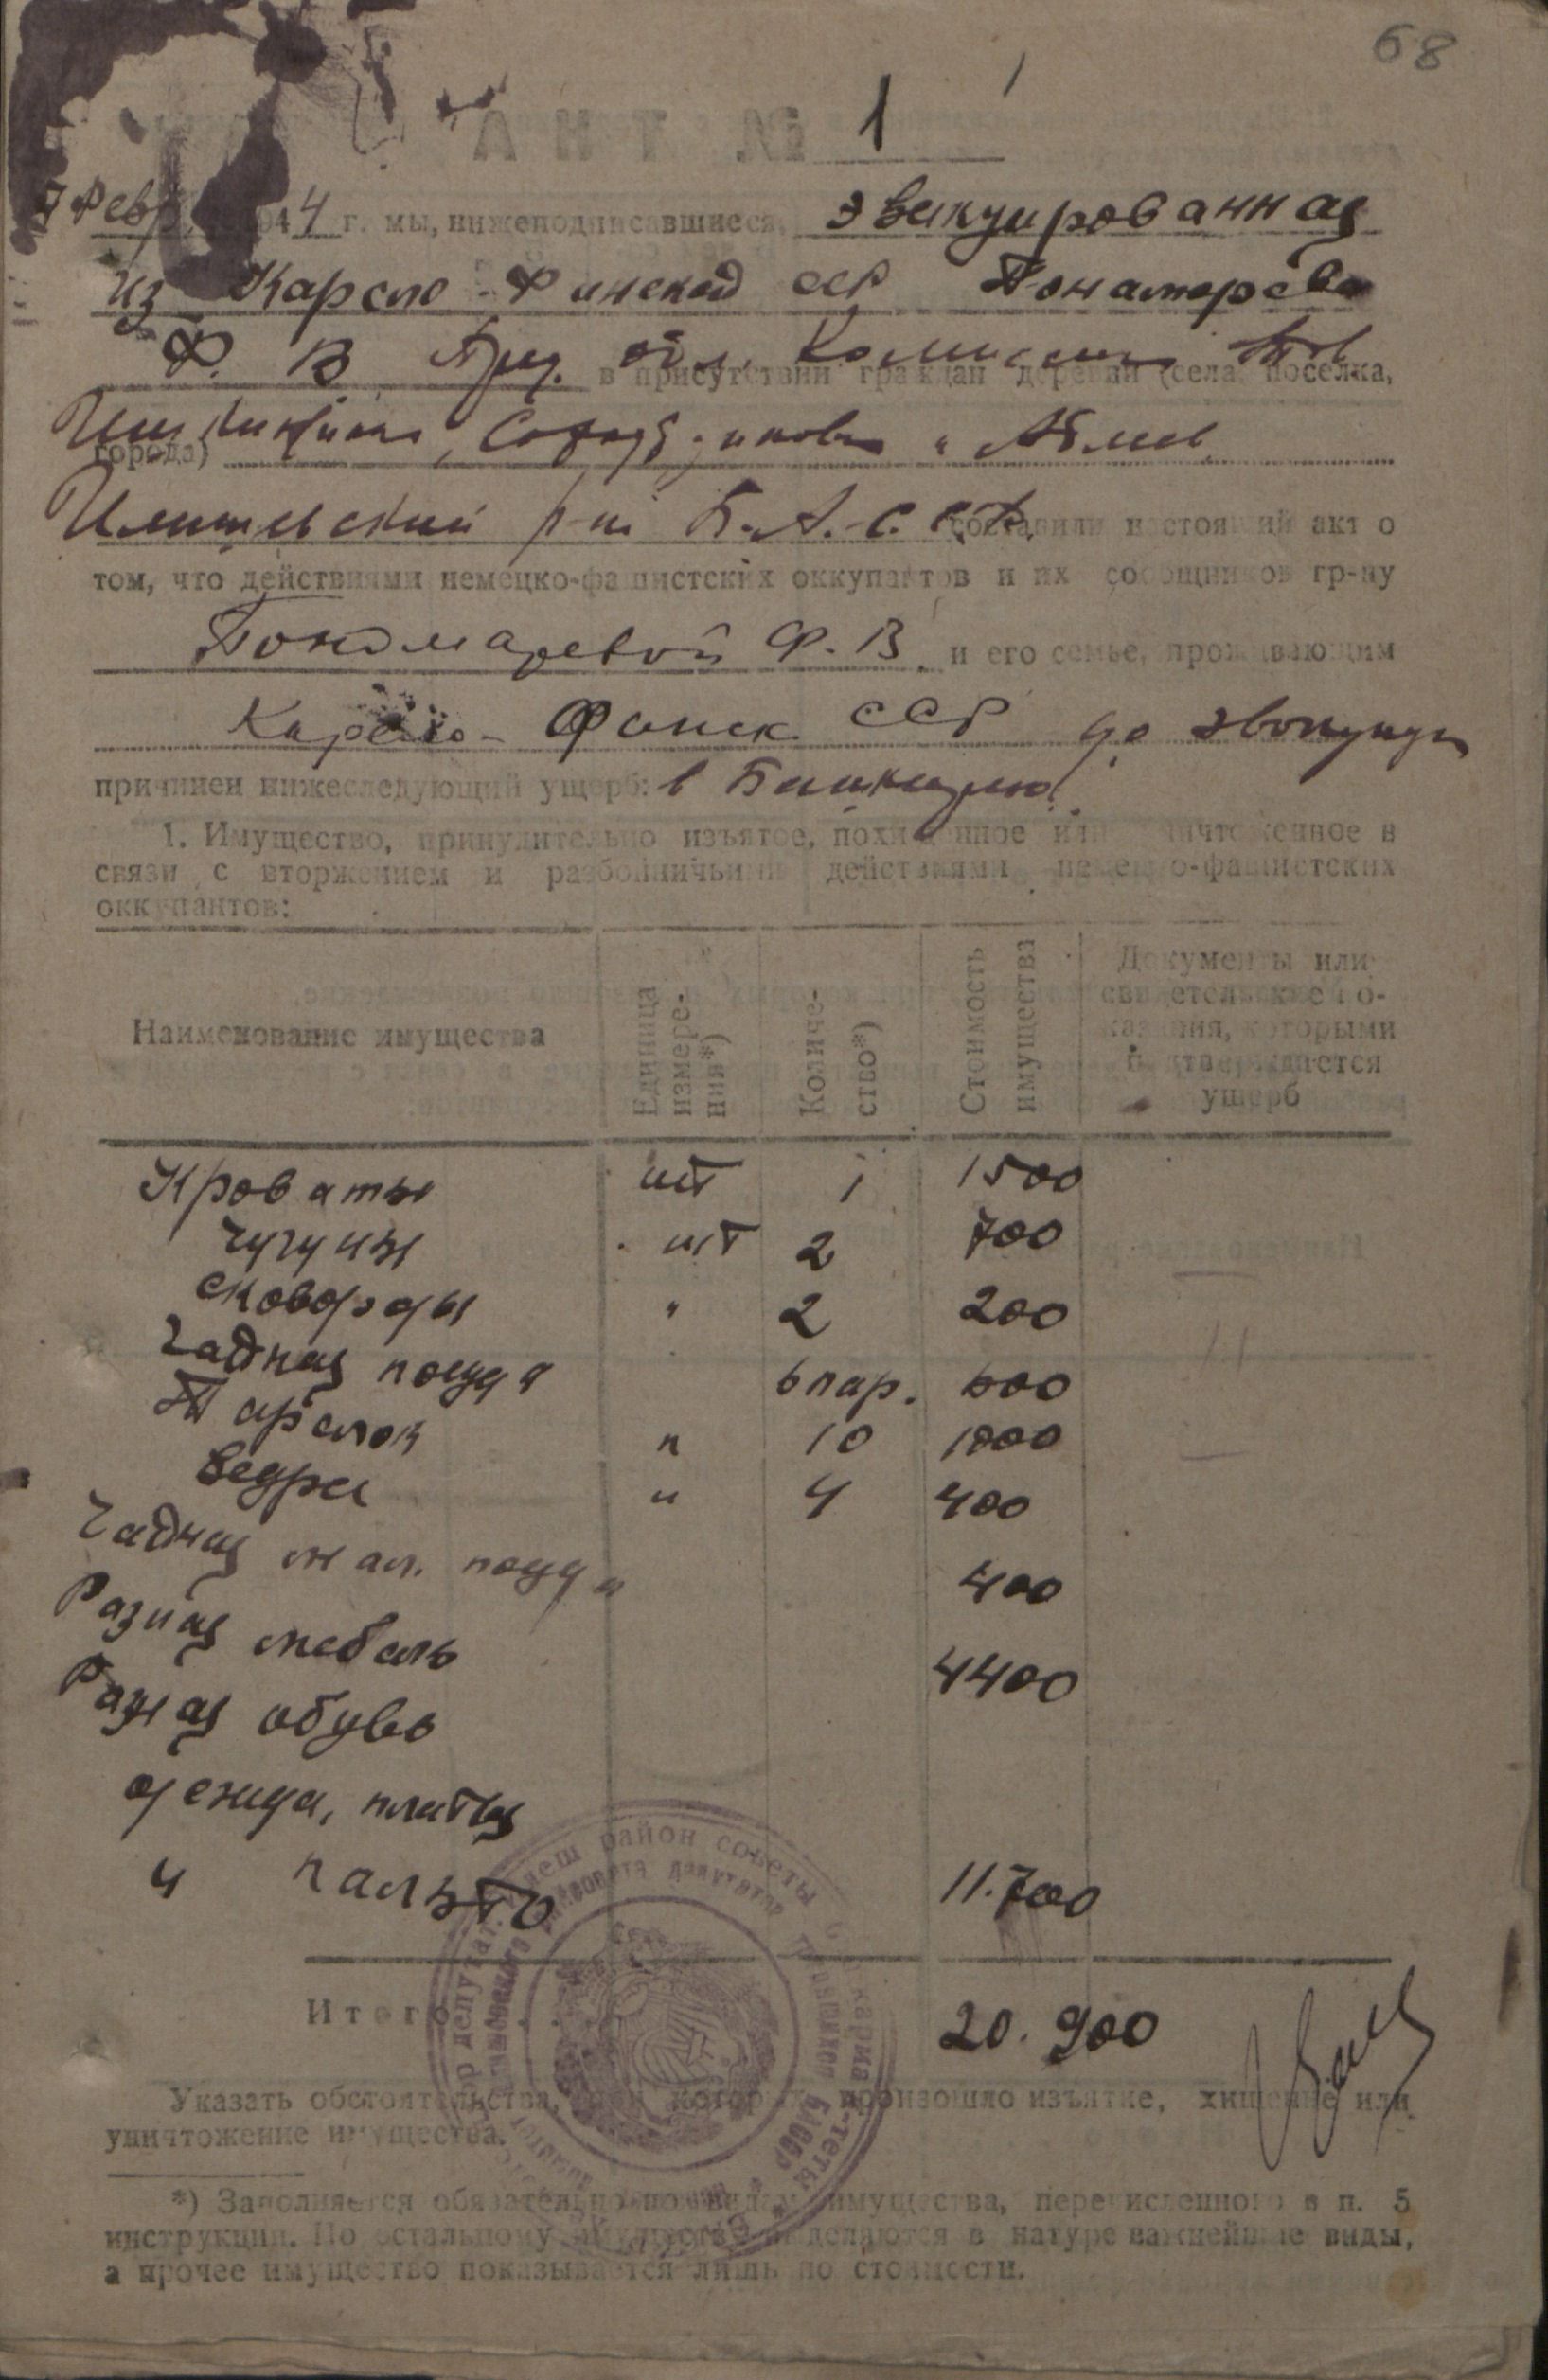 68
АКТ № 1
7 Февр 1944 г. мы, нижеподписавшиеся, эвакуированная
из Карело-Финской ССР Понамарева
Ф. В Пред. Комиссии
в присутствии граждан деревни (села, поселка,
города)
Илишевский р-н Б.А.С.С.Р. составили настоящий акт о
том, что действиями немецко-фашистских оккупантов и их сообщников гр-ну
Понамаревой Ф. В. и его семье, проживающим
Карело-Финск ССР до
причинен нижеследующий ущерб: в Башкирию
1. Имущество, принудительно изъятое, похищенное или уничтоженное в
связи с вторжением и разбойничьими действиями немецко-фашистских
оккупантов:
Наименование имущества
Единица измерения*)
Количество*)
Стоимость имущества
Документы или
свидетельские по-
казания, которыми
подтверждается
ущерб
Кроваты шт 1 1500
Чугуны шт 2 700
сковороды " 2 200
Чайная посуда 6 пар. 600
Тарелок " 10 1000
Ведра " 4 400
Чайная мал. посуда 400
Разная мебель 4400
Разная обувь
одежда, платья
и пальто 11.700
Итого 20.900
Указать обстоятельства, при которых произошло изъятие, хищение или
уничтожение имущества.
*) Заполняется обязательно по видам имущества, перечисленного в п. 5
инструкции. По остальному имуществу выделяются в натуре важнейшие виды,
а прочее имущество показывается лишь по стоимости.